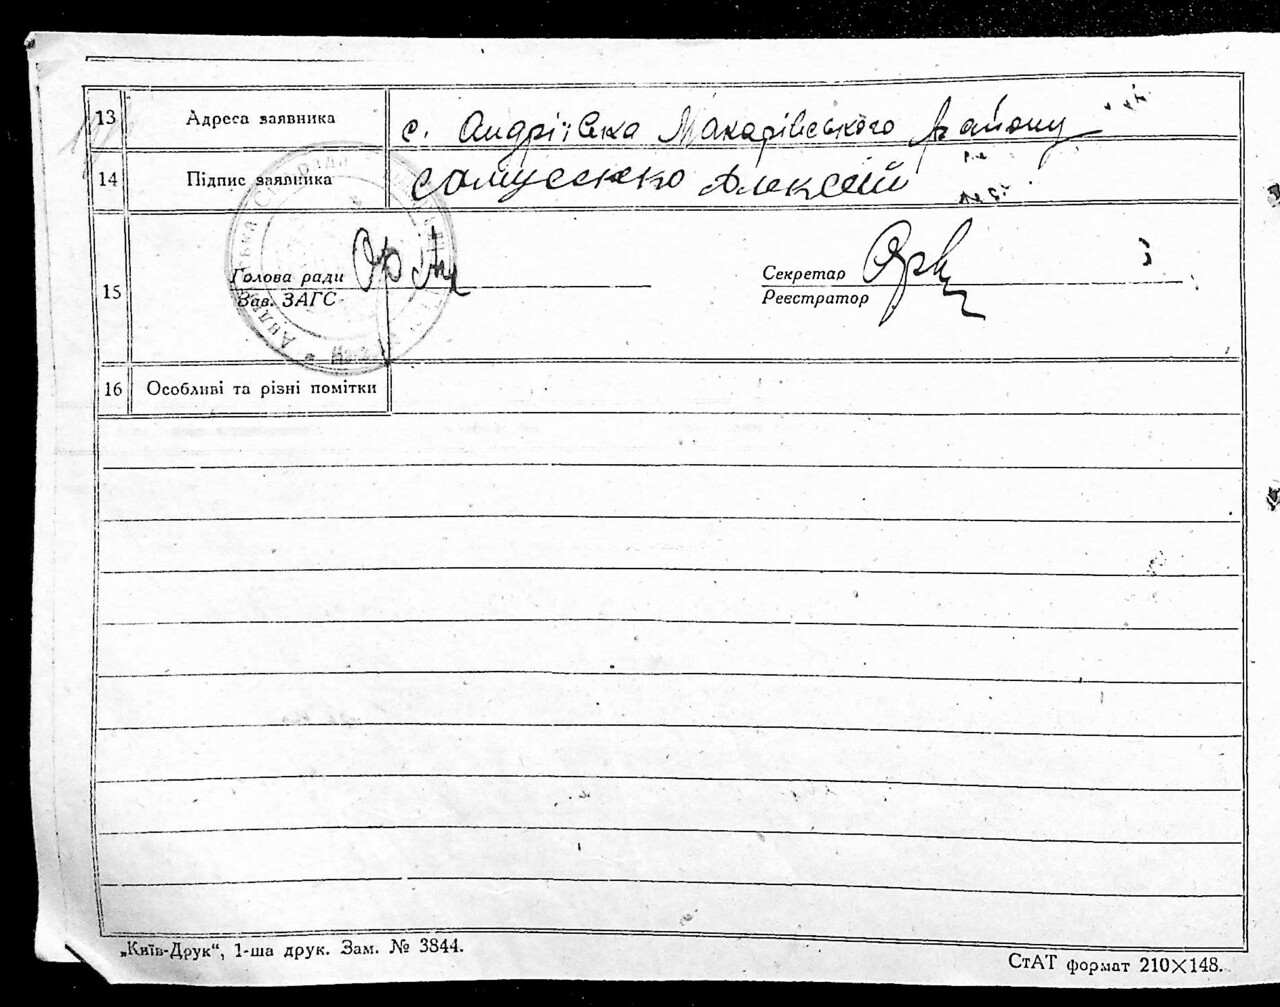 13 Адреса заявника с. Андріївка Макарівського району
14 Підпис заявника Самусенко Алексей
15 Голова ради
Зав. ЗАГС
Секретар
Реєстратор
16 Особливі та різні помітки
„Київ-Друк“, 1-ша друк. Зам. № 3844.
СтАТ формат 210×148.